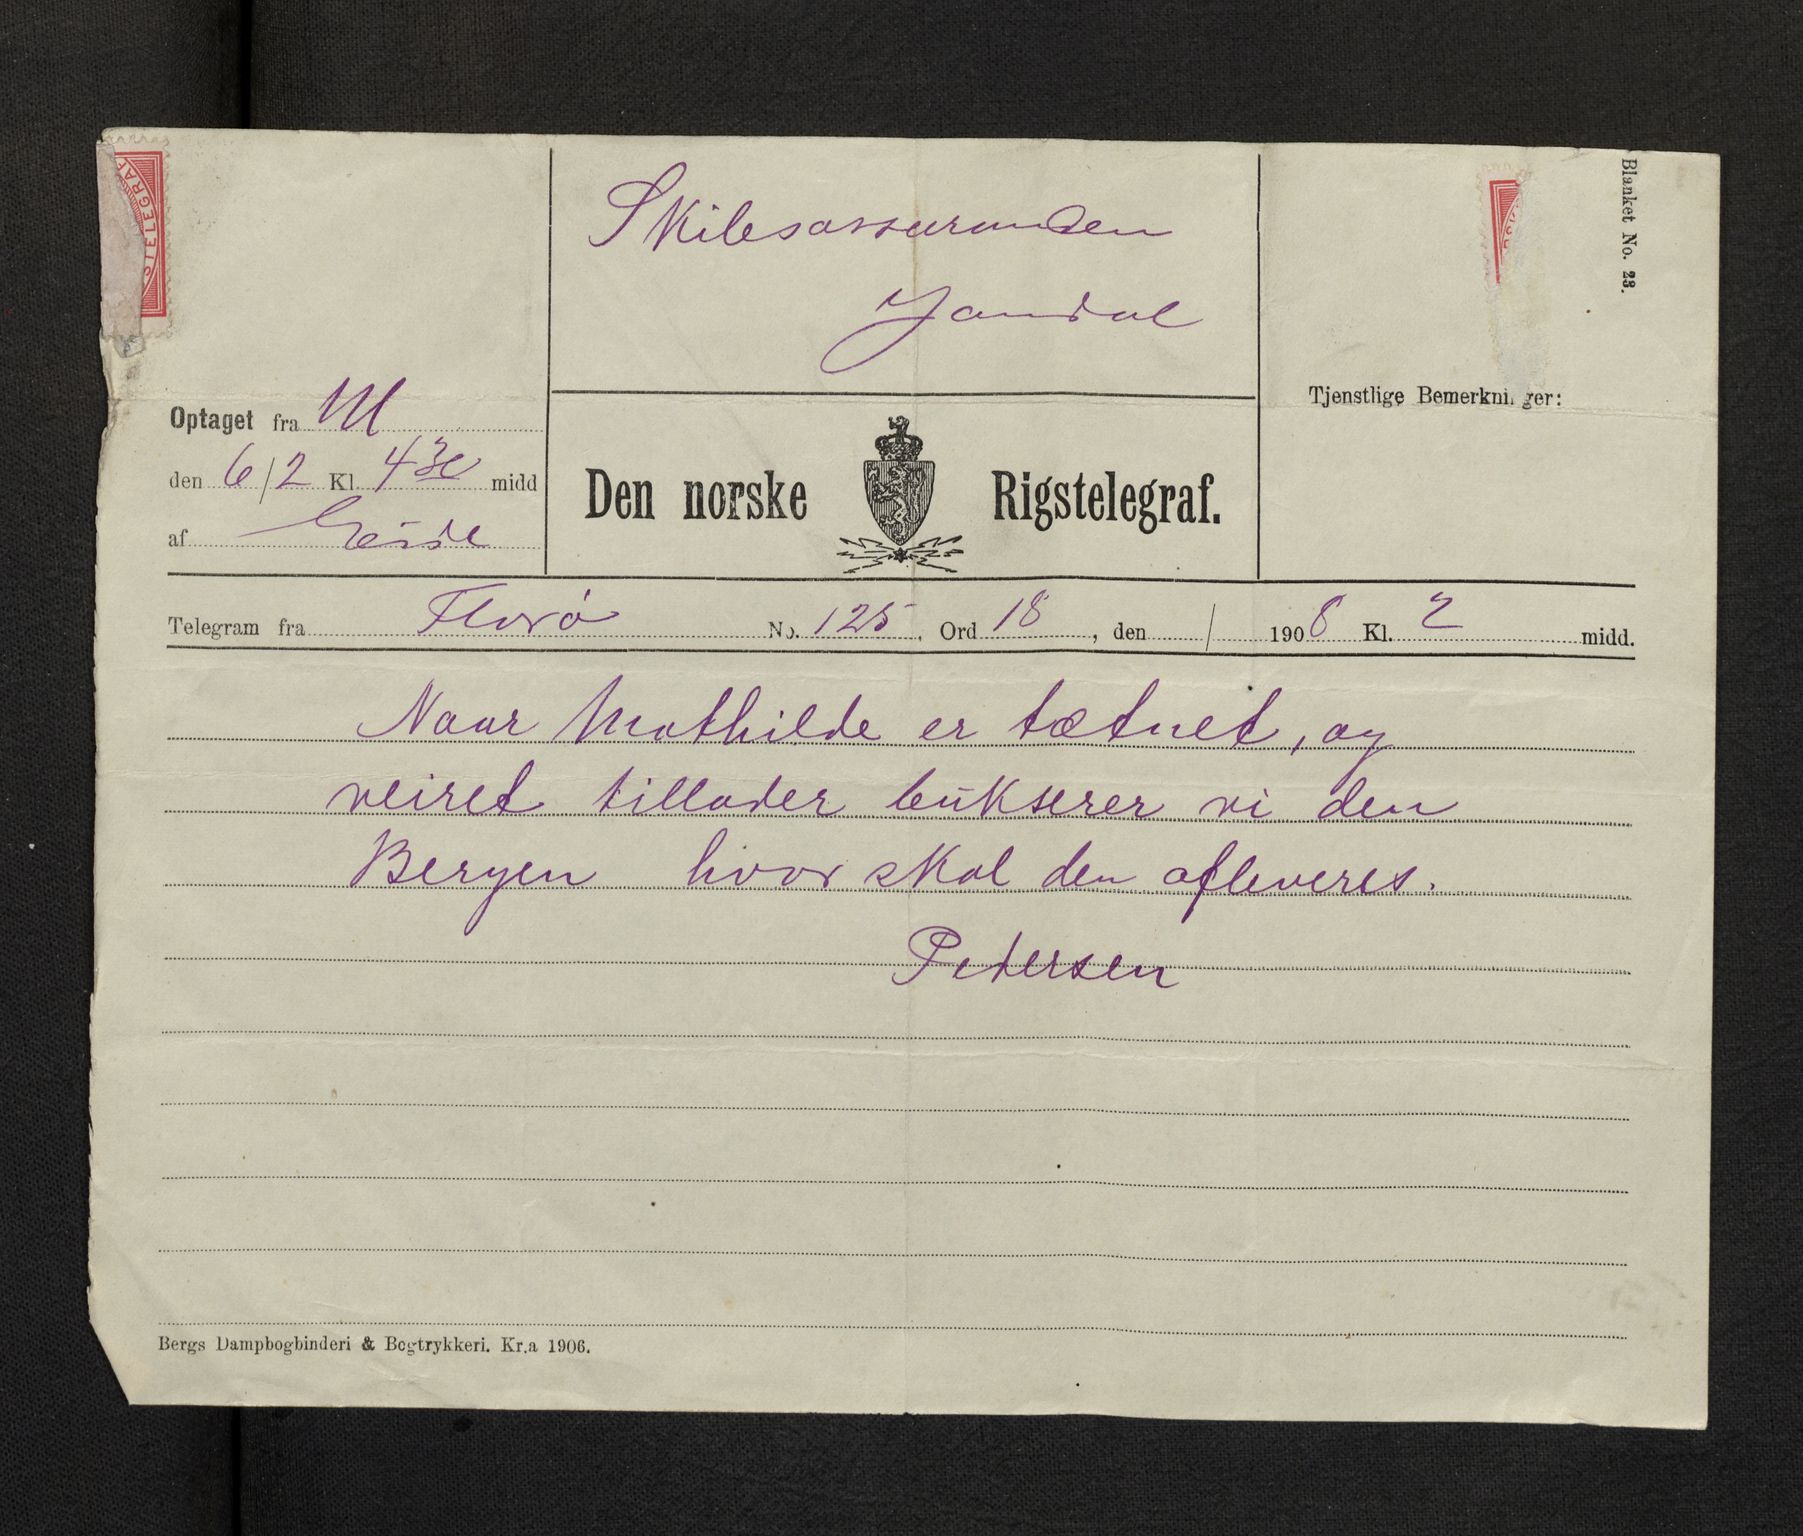 STELEGRAF
Skibsassuransen
Jondal
Blanket No. 23.
Tjenstlige Bemerkninger:
Optaget fra M
den 6/2 Kl. 4 30 midd
af Eide
Den norske Rigstelegraf.
Telegram fra Florø No. 125, Ord 18, den / 1908 Kl. 2 midd.
Naar Mathilde er tætnet, og
veiret tillader bukserer vi den
Bergen hvor skal den afleveres.
Petersen
Bergs Dampbogbinderi & Bogtrykkeri. Kr.a 1906.